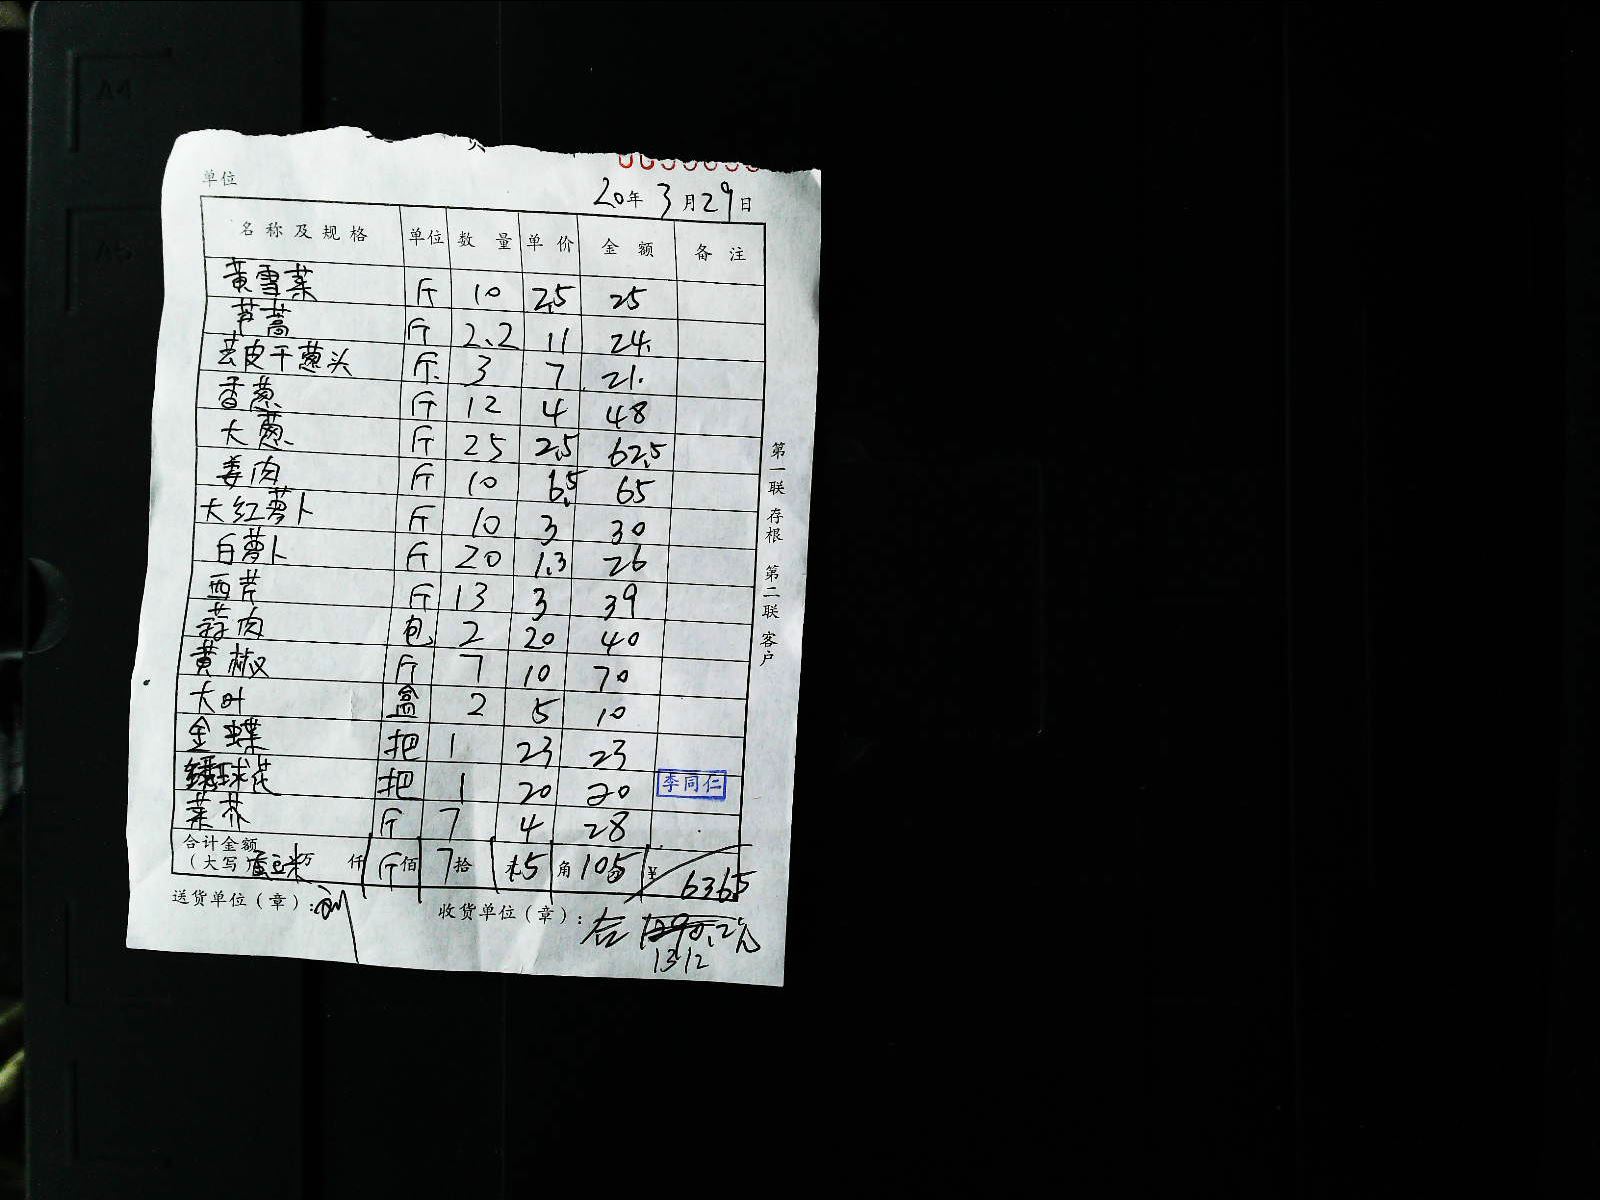 A4
A5
单位
20年 3月29日
名称及规格 单位 数量 单价 金额 备注
黄雪菜 斤 10 2.5 25
芦蒿 斤 2.2 11 24.
去皮干葱头 斤 3 7 21.
香葱 斤 12 4 48
大葱 斤 25 2.5 62.5
姜肉 斤 10 6.5 65
大红萝卜 斤 10 3 30
白萝卜 斤 20 1.3 26
西芹 斤 13 3 39
蒜肉 包 2 20 40
黄椒 斤 7 10 70
大叶 盒 2 5 10
金蝶 把 1 23 23
绣球花 把 1 20 20
李同仁
菜芥 斤 7 4 28
合计金额
(大写) 蚕豆米 万 仟 斤 佰 7 拾 15 角 105 ¥ 636.5
送货单位(章): 收货单位(章): 合 1290.2元
1312
第一联 存根 第二联 客户